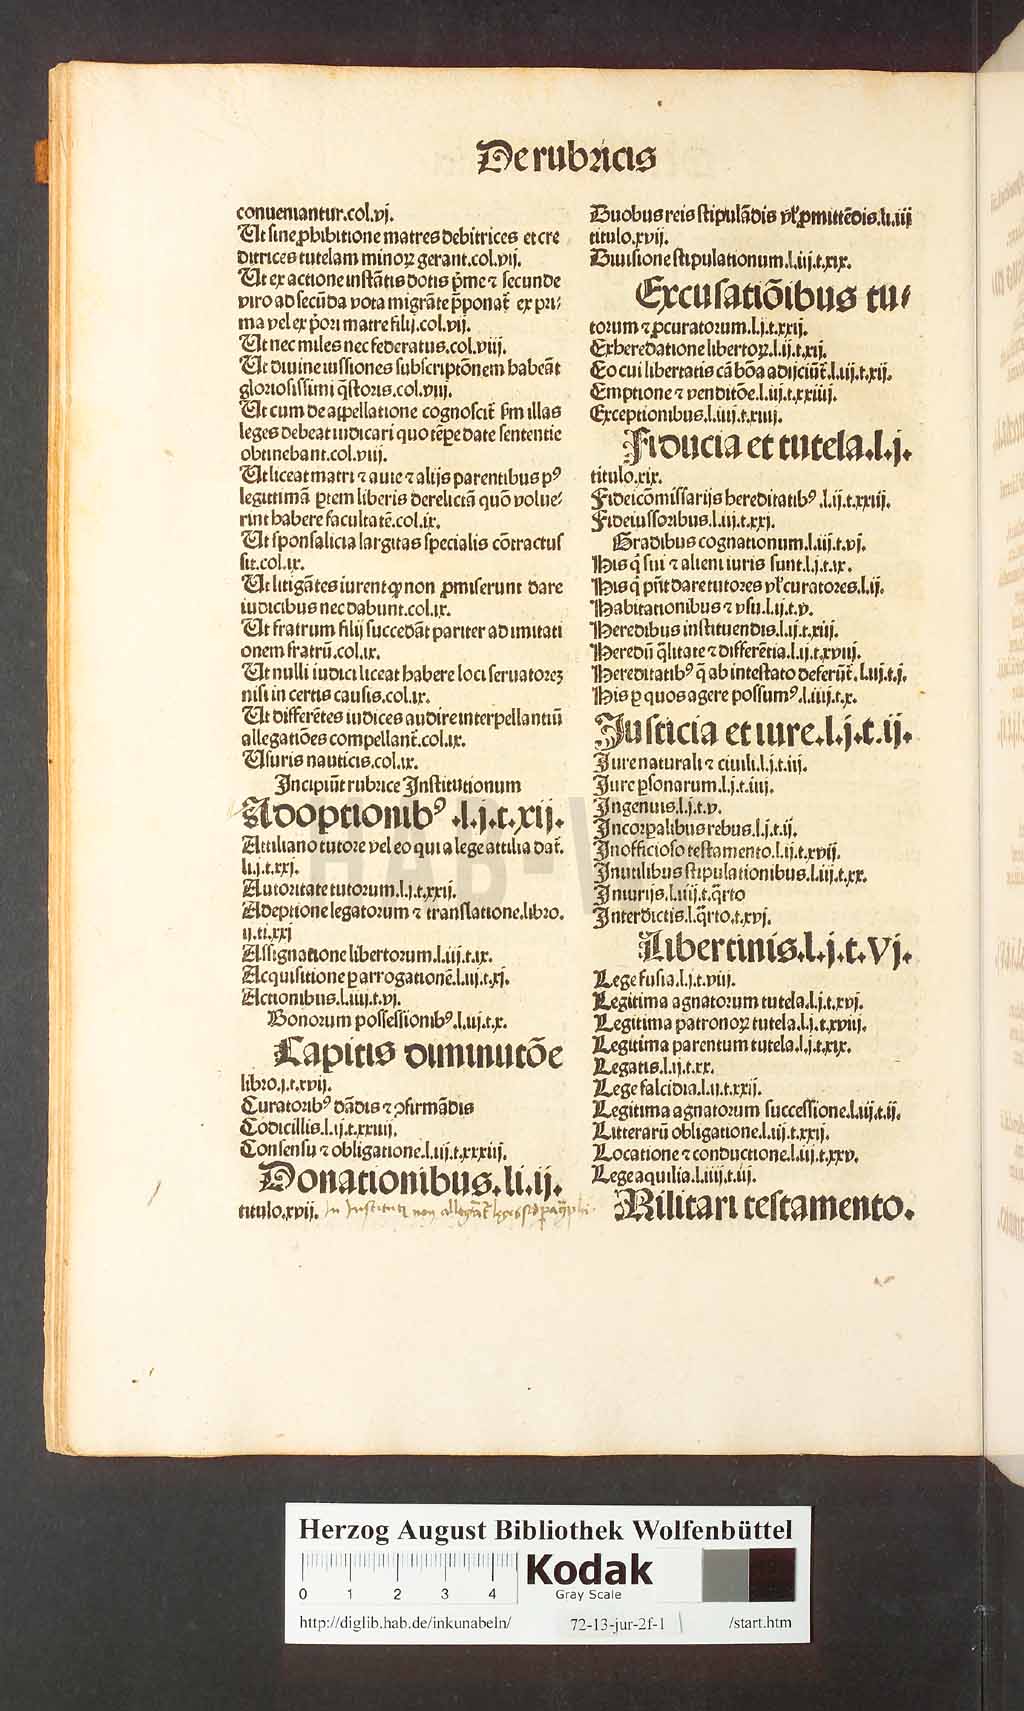 De rubricis
conueniantur.col.vj.
Ut sine ꝓhibitione matres debitrices et cre
ditrices tutelam minoꝝ gerant.col.vij.
Ut ex actione instātis dotis p̄me ⁊ secunde
viro ad secūda vota migrāte p̄ponat̄ ex pri⸗
ma vel ex p̄ori matre filij.col.vij.
Ut nec miles nec federatus.col.viij.
Ut diuine iussiones subscriptōnem habeāt
gloriosissimi q̄storis.col.viij.
Ut cum de appellatione cognoscit̄ s̄m illas
leges debeat iudicari quo tēpe date sententie
obtinebant.col.viij.
Ut liceat matri ⁊ auie ⁊ alijs parentibus pꝰ
legittimā ꝑtem liberis derelictā quō volue⸗
rint habere facultatē.col.ix.
Ut sponsalicia largitas specialis cōtractus
sit.col.ix.
Ut litigātes iurent ꝙ non ꝓmiserunt dare
iudicibus nec dabunt.col.ix.
Ut fratrum filij succedāt pariter ad imitati
onem fratrū.col.ix.
Ut nulli iudici liceat habere loci seruatorez
nisi in certis causis.col.ix.
Ut differētes iudices audire interpellantiū
allegatiōes compellant̄.col.ix.
Usuris nauticis.col.ix.
Incipiūt rubrice Institutionum
Adoptionibꝰ.l.j.t.xij.
Attiliano tutore vel eo qui a lege attilia dat̄.
li.j.t.xxj.
Autoritate tutorum.l.j.t.xxij.
Adeptione legatorum ⁊ translatione.libro.
ij.ti.xxj
Assignatione libertorum.l.iij.t.ix.
Acquisitione ꝑ arrogationē.l.iij.t.xj.
Actionibus.l.iiij.t.vj.
Bonorum possessionibꝰ.l.iij.t.x.
Capitis diminutōe
libro.j.t.xvij.
Curatoribꝰ dādis ⁊ ꝯfirmādis
Codicillis.l.ij.t.xxvij.
Consensu ⁊ obligatione.l.iij.t.xxxiij.
Donationibus.li.ij.
titulo.xvij.
Duobus reis stipulādis vl̄ ꝓmittēdis.li.iij
titulo.xvij.
Diuisione stipulationum.l.iij.t.xix.
Excusatiōibus tu⸗
torum ⁊ ꝓcuratorum.l.j.t.xxij.
Exheredatione libertoꝝ.l.ij.t.xij.
Eo cui libertatis cā bōa adijciūt̄.l.iij.t.xij.
Emptione ⁊ venditōe.l.iij.t.xxiiij.
Exceptionibus.l.iiij.t.xiij.
Fiducia et tutela.l.j.
titulo.xix.
Fideicōmissarijs hereditatibꝰ.l.ij.t.xxiij.
Fideiussoribus.l.iij.t.xxj.
Gradibus cognationum.l.iij.t.vj.
His q̄ sui ⁊ alieni iuris sunt.l.j.t.ix.
His q̄ pn̄t dare tutores vl̄ curatores.l.ij.
Habitationibus ⁊ vsu.l.ij.t.v.
Heredibus instituendis.l.ij.t.xiij.
Heredū q̄litate ⁊ differētia.l.ij.t.xviij.
Hereditatibꝰ q̄ ab intestato deferūt̄.l.iij.t.j.
His ꝑ quos agere possumꝰ.l.iiij.t.x.
Justicia et iure.l.j.t.ij.
Jure naturali ⁊ ciuili.l.j.t.iij.
Jure ꝑsonarum.l.j.t.iiij.
Ingenuis.l.j.t.v.
Incorꝑalibus rebus.l.j.t.ij.
Inofficioso testamento.l.ij.t.xvij.
Inutilibus stipulationibus.l.iij.t.xx.
Iniurijs.l.iiij.t.q̄rto
Interdictis.l.q̄rto.t.xvj.
Libertinis.l.j.t.vj.
Lege fusia.l.j.t.viij.
Legitima agnatorum tutela.l.j.t.xvj.
Legitima patronoꝝ tutela.l.j.t.xviij.
Legitima parentum tutela.l.j.t.xix.
Legatis.l.ij.t.xx.
Lege falcidia.l.ij.t.xxij.
Legitima agnatorum successione.l.iij.t.ij.
Litterarū obligatione.l.iij.t.xxij.
Locatione ⁊ conductione.l.iij.t.xxv.
Lege aquilia.l.iiij.t.iij.
Militari testamento.
HAB-W
Herzog August Bibliothek Wolfenbüttel
0 1 2 3 4
Kodak
Gray Scale
http://diglib.hab.de/inkunabeln/ 72-13-jur-2f-1 /start.htm